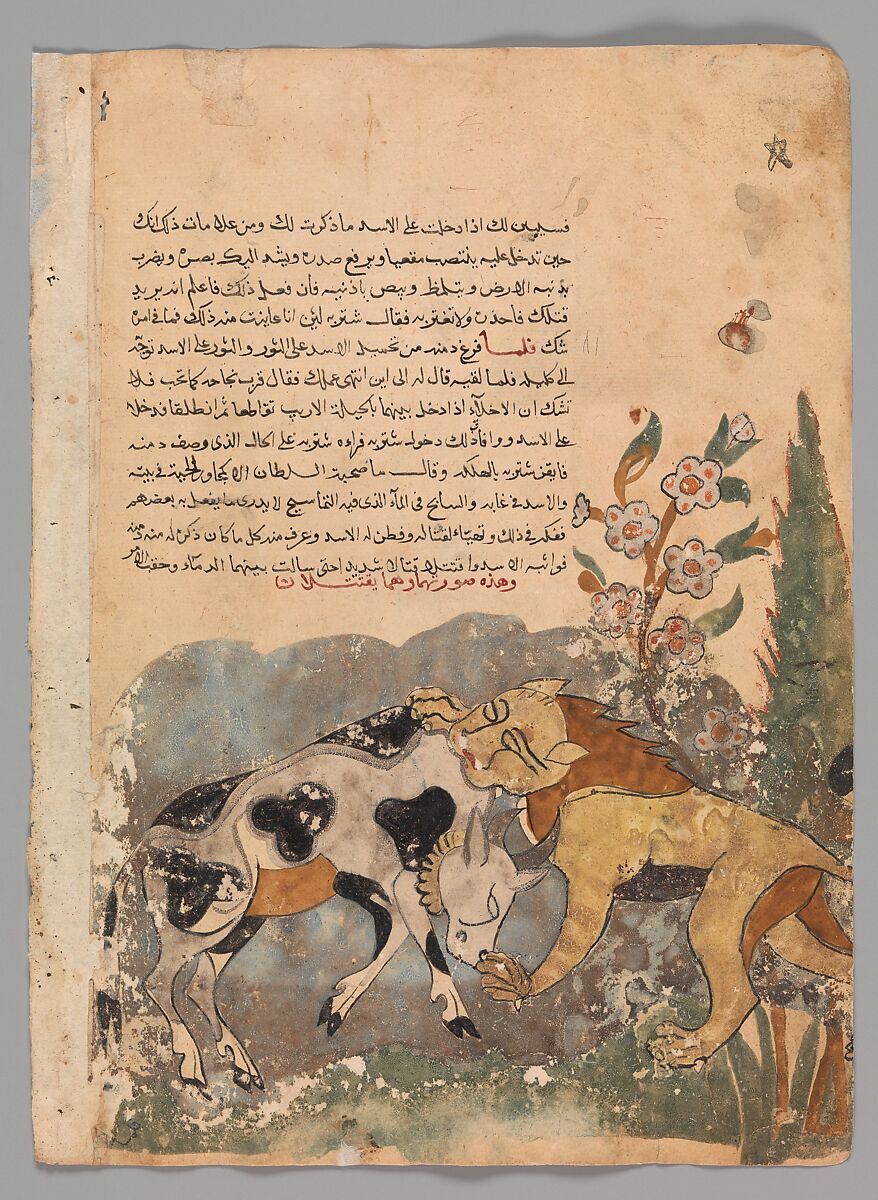 فسيبين لك اذا دخلت على الاسد ما ذكرت لك ومن علامات ذلك انك
حين تدخل عليه ينتصب مقعيا ويرفع صدره ويشد اليك بصره ويضرب
بذنبه الارض ويتلمظ ويبص باذنيه فان فعل ذلك فاعلم انه يريد
قتلك فاحذره ولا تغتر به فقال شتربه لئن انا عاينت منه ذلك فما في امره
شك فلما فرغ دمنه من تحميل الاسد على الثور والثور على الاسد توجه
الى كليله فلما لقيه قال له الى اين انتهى عملك فقال قرب نجاحه كما تحب فلا
تشك ان الاخلاء اذا دخل بينهما باحيلة الاريب تقاطعا ثم انطلقا فدخلا
على الاسد ووافا ذلك دخول شتربه فراءه شتربه على الحال الذى وصف دمنه
فايقن شتربه بالهلكه وقال ما صحبة السلطان الا كمجاور الحية في بيته
والاسد في غابه والسابح في الماء الذى فيه التماسيح لا يدرى ما يفعل به بعضهم
ففكر في ذلك وتهياء لقتاله وفطن له الاسد وعرف منه كل ما كان ذكره له دمنه
فواثبه الاسد واقتتلا قتالا شديدا حتى سالت بينهما الدماء
وهذه صورتهما وهما يقتتلان